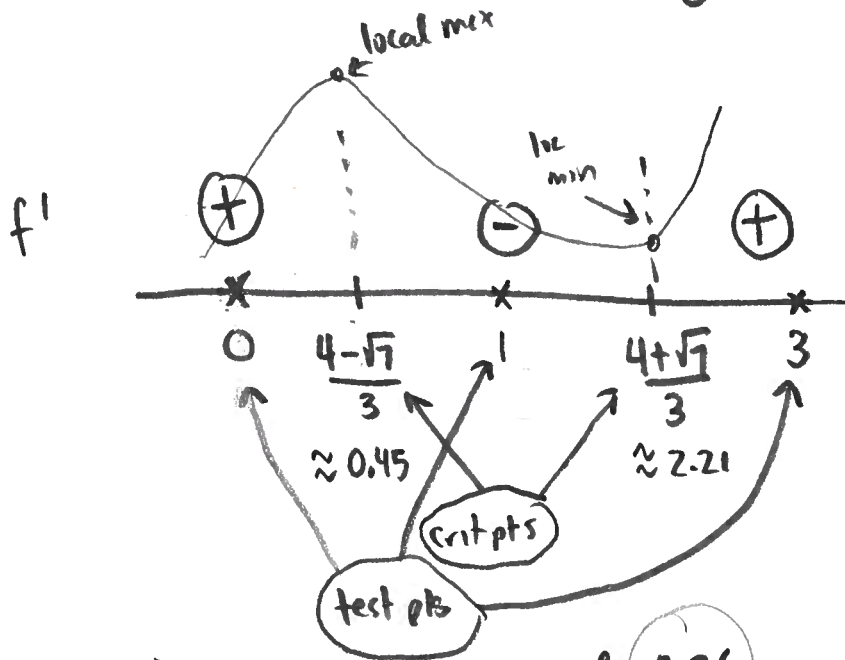 local max
loc
min
f'
+
-
+
0
4-√7
3
1
4+√7
3
3
≈ 0.45
≈ 2.21
crit pts
test pts